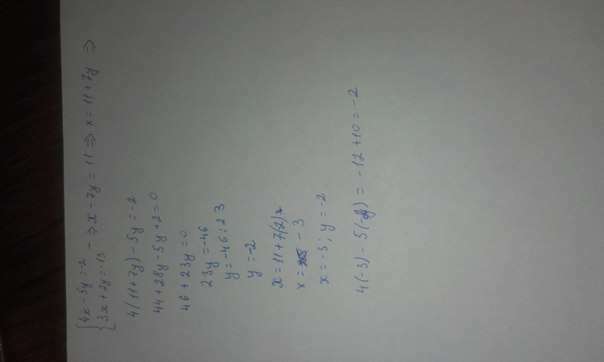 {4x - 5y = -2
{3x + 2y = -13 -> x - 7y = 11 => x = 11 + 7y =>
4(11+7y) - 5y = -2
44 + 28y - 5y + 2 = 0
46 + 23y = 0
23y = -46
y = -46 : 23
y = -2
x = 11 + 7(2)
x = - 3
x = -3; y = -2
4(-3) - 5(-2) = -12 + 10 = -2